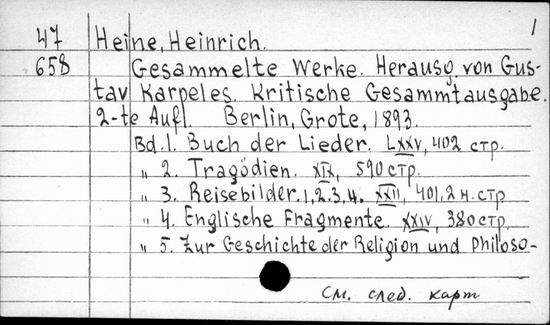 1
47 Heine, Heinrich.
658 Gesammelte Werke. Herausg. von Gus-
tav Karpeles. Kritische Gesammtausgabe.
2-te Aufl. Berlin, Grote, 1893.
Bd. 1. Buch der Lieder. LXXV, 402 стр.
„ 2. Tragödien. XIX, 590 стр.
„ 3. Reisebilder. 1, 2, 3, 4. XXII, 401, 2 н. стр.
„ 4. Englische Fragmente. XXIV, 380 стр.
„ 5. Zur Geschichte der Religion und Philoso-
См. след. карт